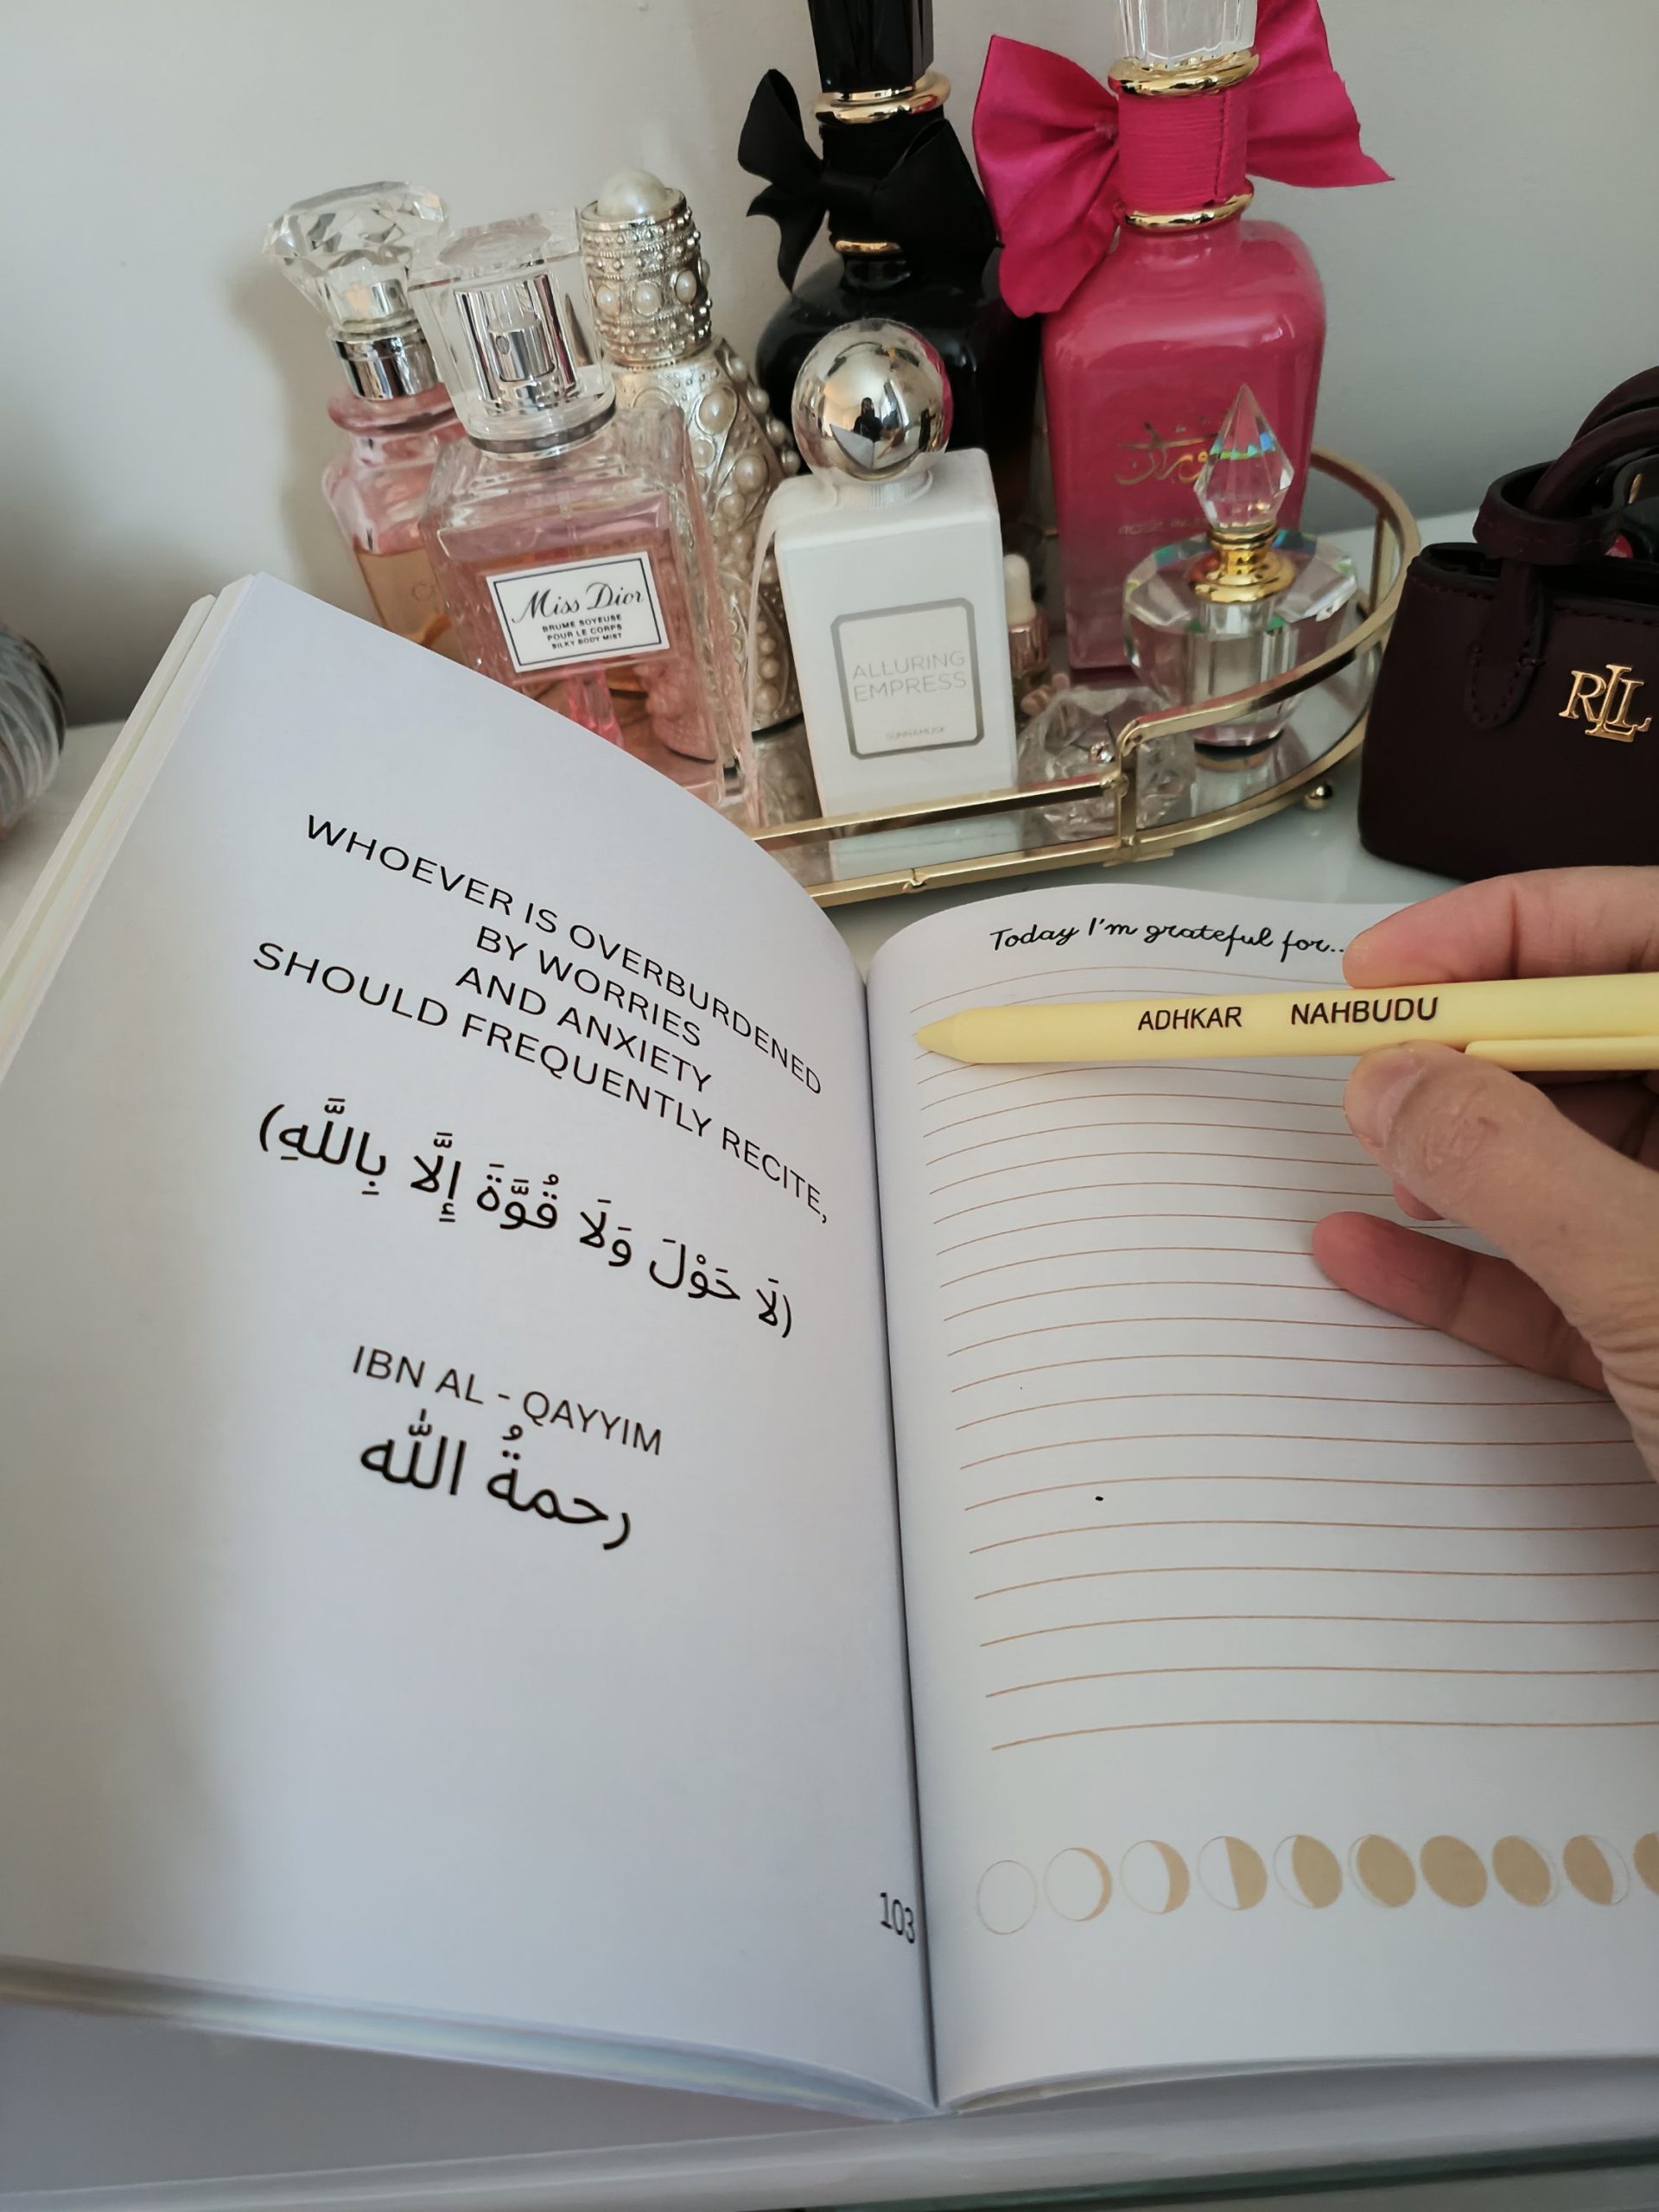 Miss Dior
BRUME SOYEUSE
POUR LE CORPS
SILKY BODY MIST
ALLURING
EMPRESS
SUNNAMUSK
RLL
WHOEVER IS OVERBURDENED
BY WORRIES
AND ANXIETY
SHOULD FREQUENTLY RECITE,
(لَا حَوْلَ وَلَا قُوَّةَ إِلَّا بِاللَّهِ)
IBN AL - QAYYIM
رحمةُ اللّٰه
103
Today I'm grateful for...
ADHKAR NAHBUDU